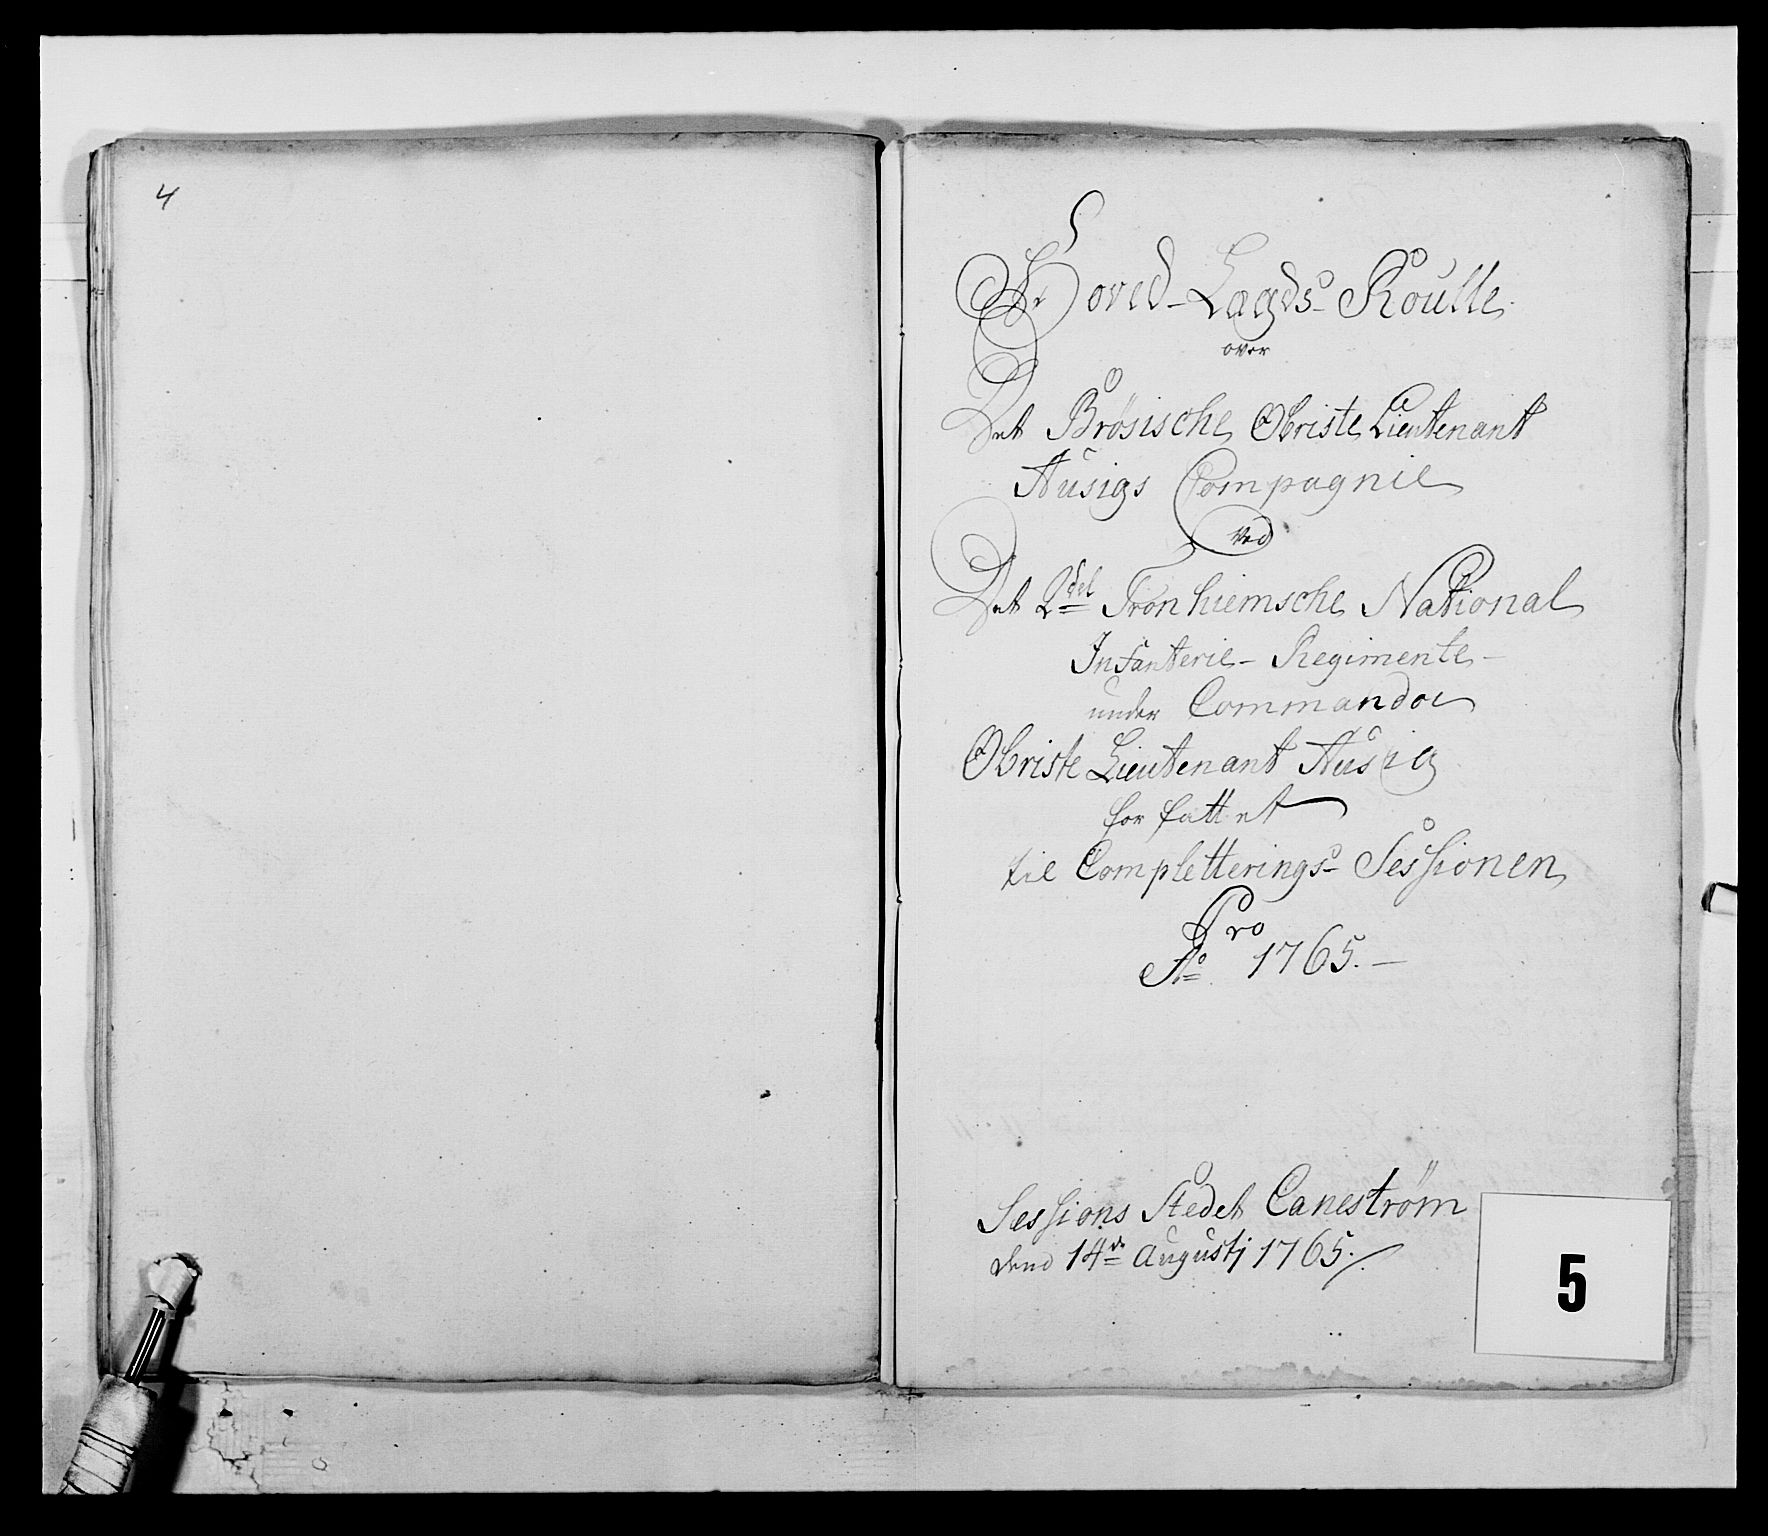 4
Hoved-Lægds-Roulle
over
Det Brösische Obriste Lieutenant
Ausigs Compagnie
ved
Det 2det Tronhiemsche National
Infanterie-Regimente-
under Commando
Obriste Lieutenant Ausig
forfattet
til Completterings-Sessionen
Pro
Ao 1765.-
Sessions Stedet Caneström
dend 14de Augustj 1765.
5